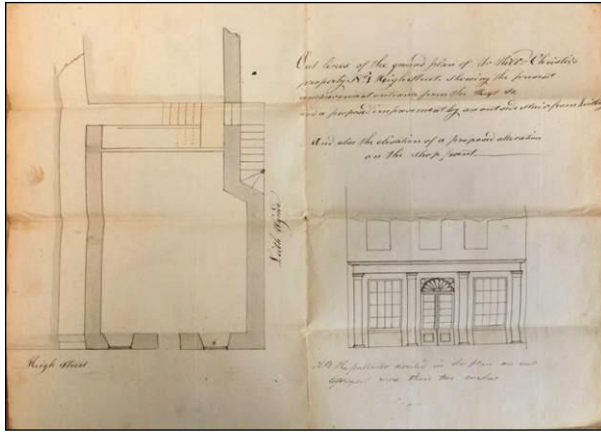 Out lines of the ground plan of Christie's
property No. 1 High Street. Showing the present
entrance from the High St
and a proposed improvement by an outside Stair from Leith
And also the elevation of a proposed alteration
on the Shop front
Leith Wynd
High Street
N.B. The in the plan are not
more than two inches